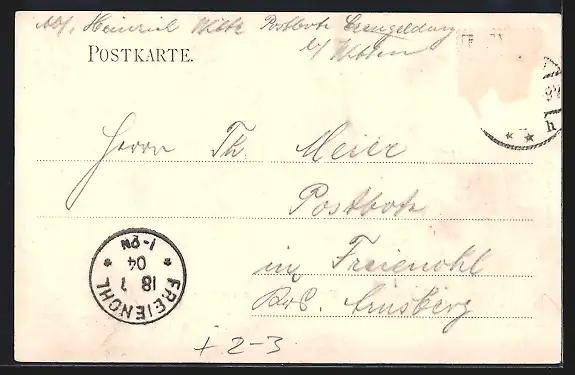 Abs. Heinrich Witte Postbote
b/ Witten
POSTKARTE.
9V
h
Herrn Th. Meier
Postbote
in Freienohl
Bez. Arnsberg
FREIENOHL
18 1
04
1-2N
+ 2-3